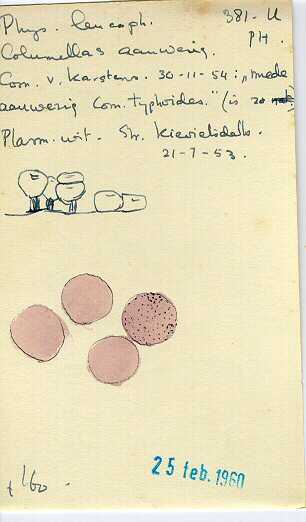 Phys. leucoph. 381-U
PH.
Columellas aanwezig.
Com. v. Karstens. 30-11-54: „mede
aanwezig Com. typhoides." (is zo
Plasm. wit. Str. Kievietsdalb.
21-7-53.
25 feb. 1960